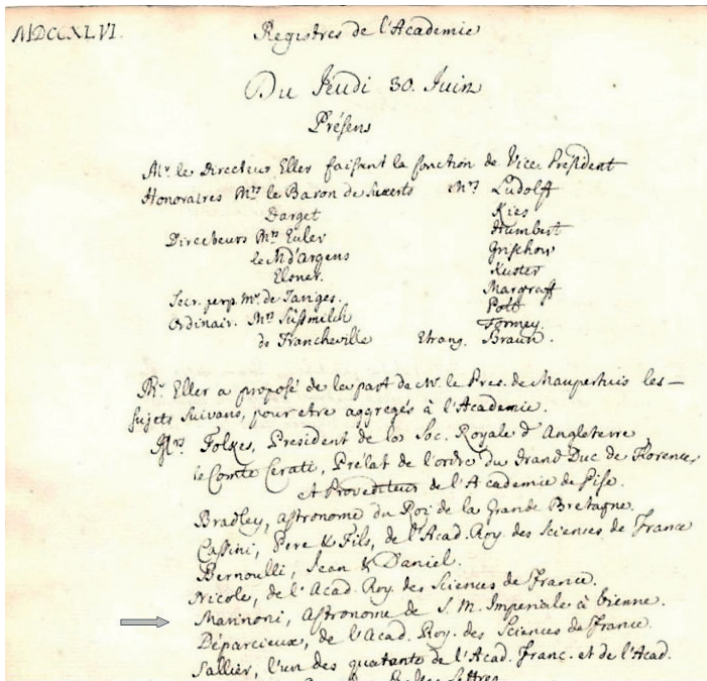 MDCCXLVI. Registres de l'Academie
Du Jeudi 30. Juin
Présens
Mr. le Directeur Eller faisant la fonction de Vice President
Honoraires Mrs le Baron de Mrs Ludolff
Darget Kies
Directeurs Mrs Euler Humbert
le M d'Argens Grischow
Elsner. Kuster
Secr. perp. Mr. de Jariges. Margraff
Ordinair. Mrs Süssmilch Pott
de Francheville Formey.
Etrang. Braun.
Mr. Eller a proposé de la part de Mr. le Pres. de Maupertuis les
sujets suivans, pour etre aggregés à l'Academie.
Mrs Folkes, President de la Soc. Royale d'Angleterre
le Comte Cerati, Prélat de l'ordre du Grand Duc de Florence,
et Provediteur de l'Academie de Pise.
Bradley, Astronome du Roi de la Grande Bretagne.
Cassini, Pere & Fils, de l'Acad. Roy. des Sciences de France
Bernoulli, Jean & Daniel.
Nicole, de l'Acad. Roy. des Sciences de France.
Marinoni, Astronome de S. M. Imperiale à Vienne.
Déparcieux, de l'Acad. Roy. des Sciences de France.
Sallier, l'un des quarante de l'Acad. Franc. et de l'Acad.